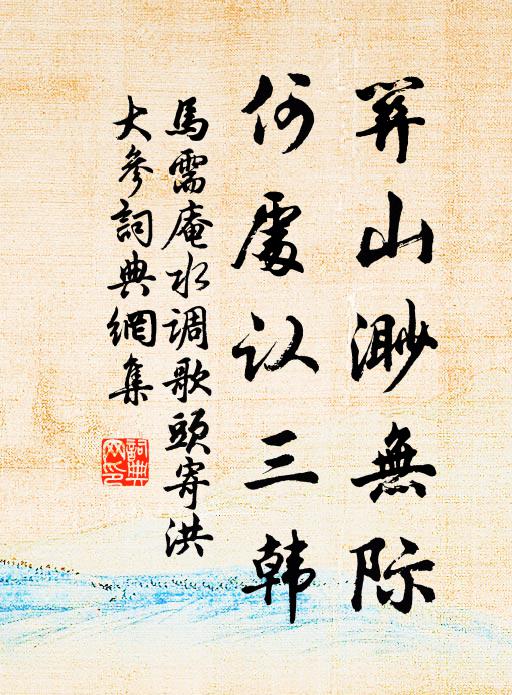 关山渺無际
何處认三韩
馬需庵水调歌頭寄洪
大參詞典網集
詞典
网印